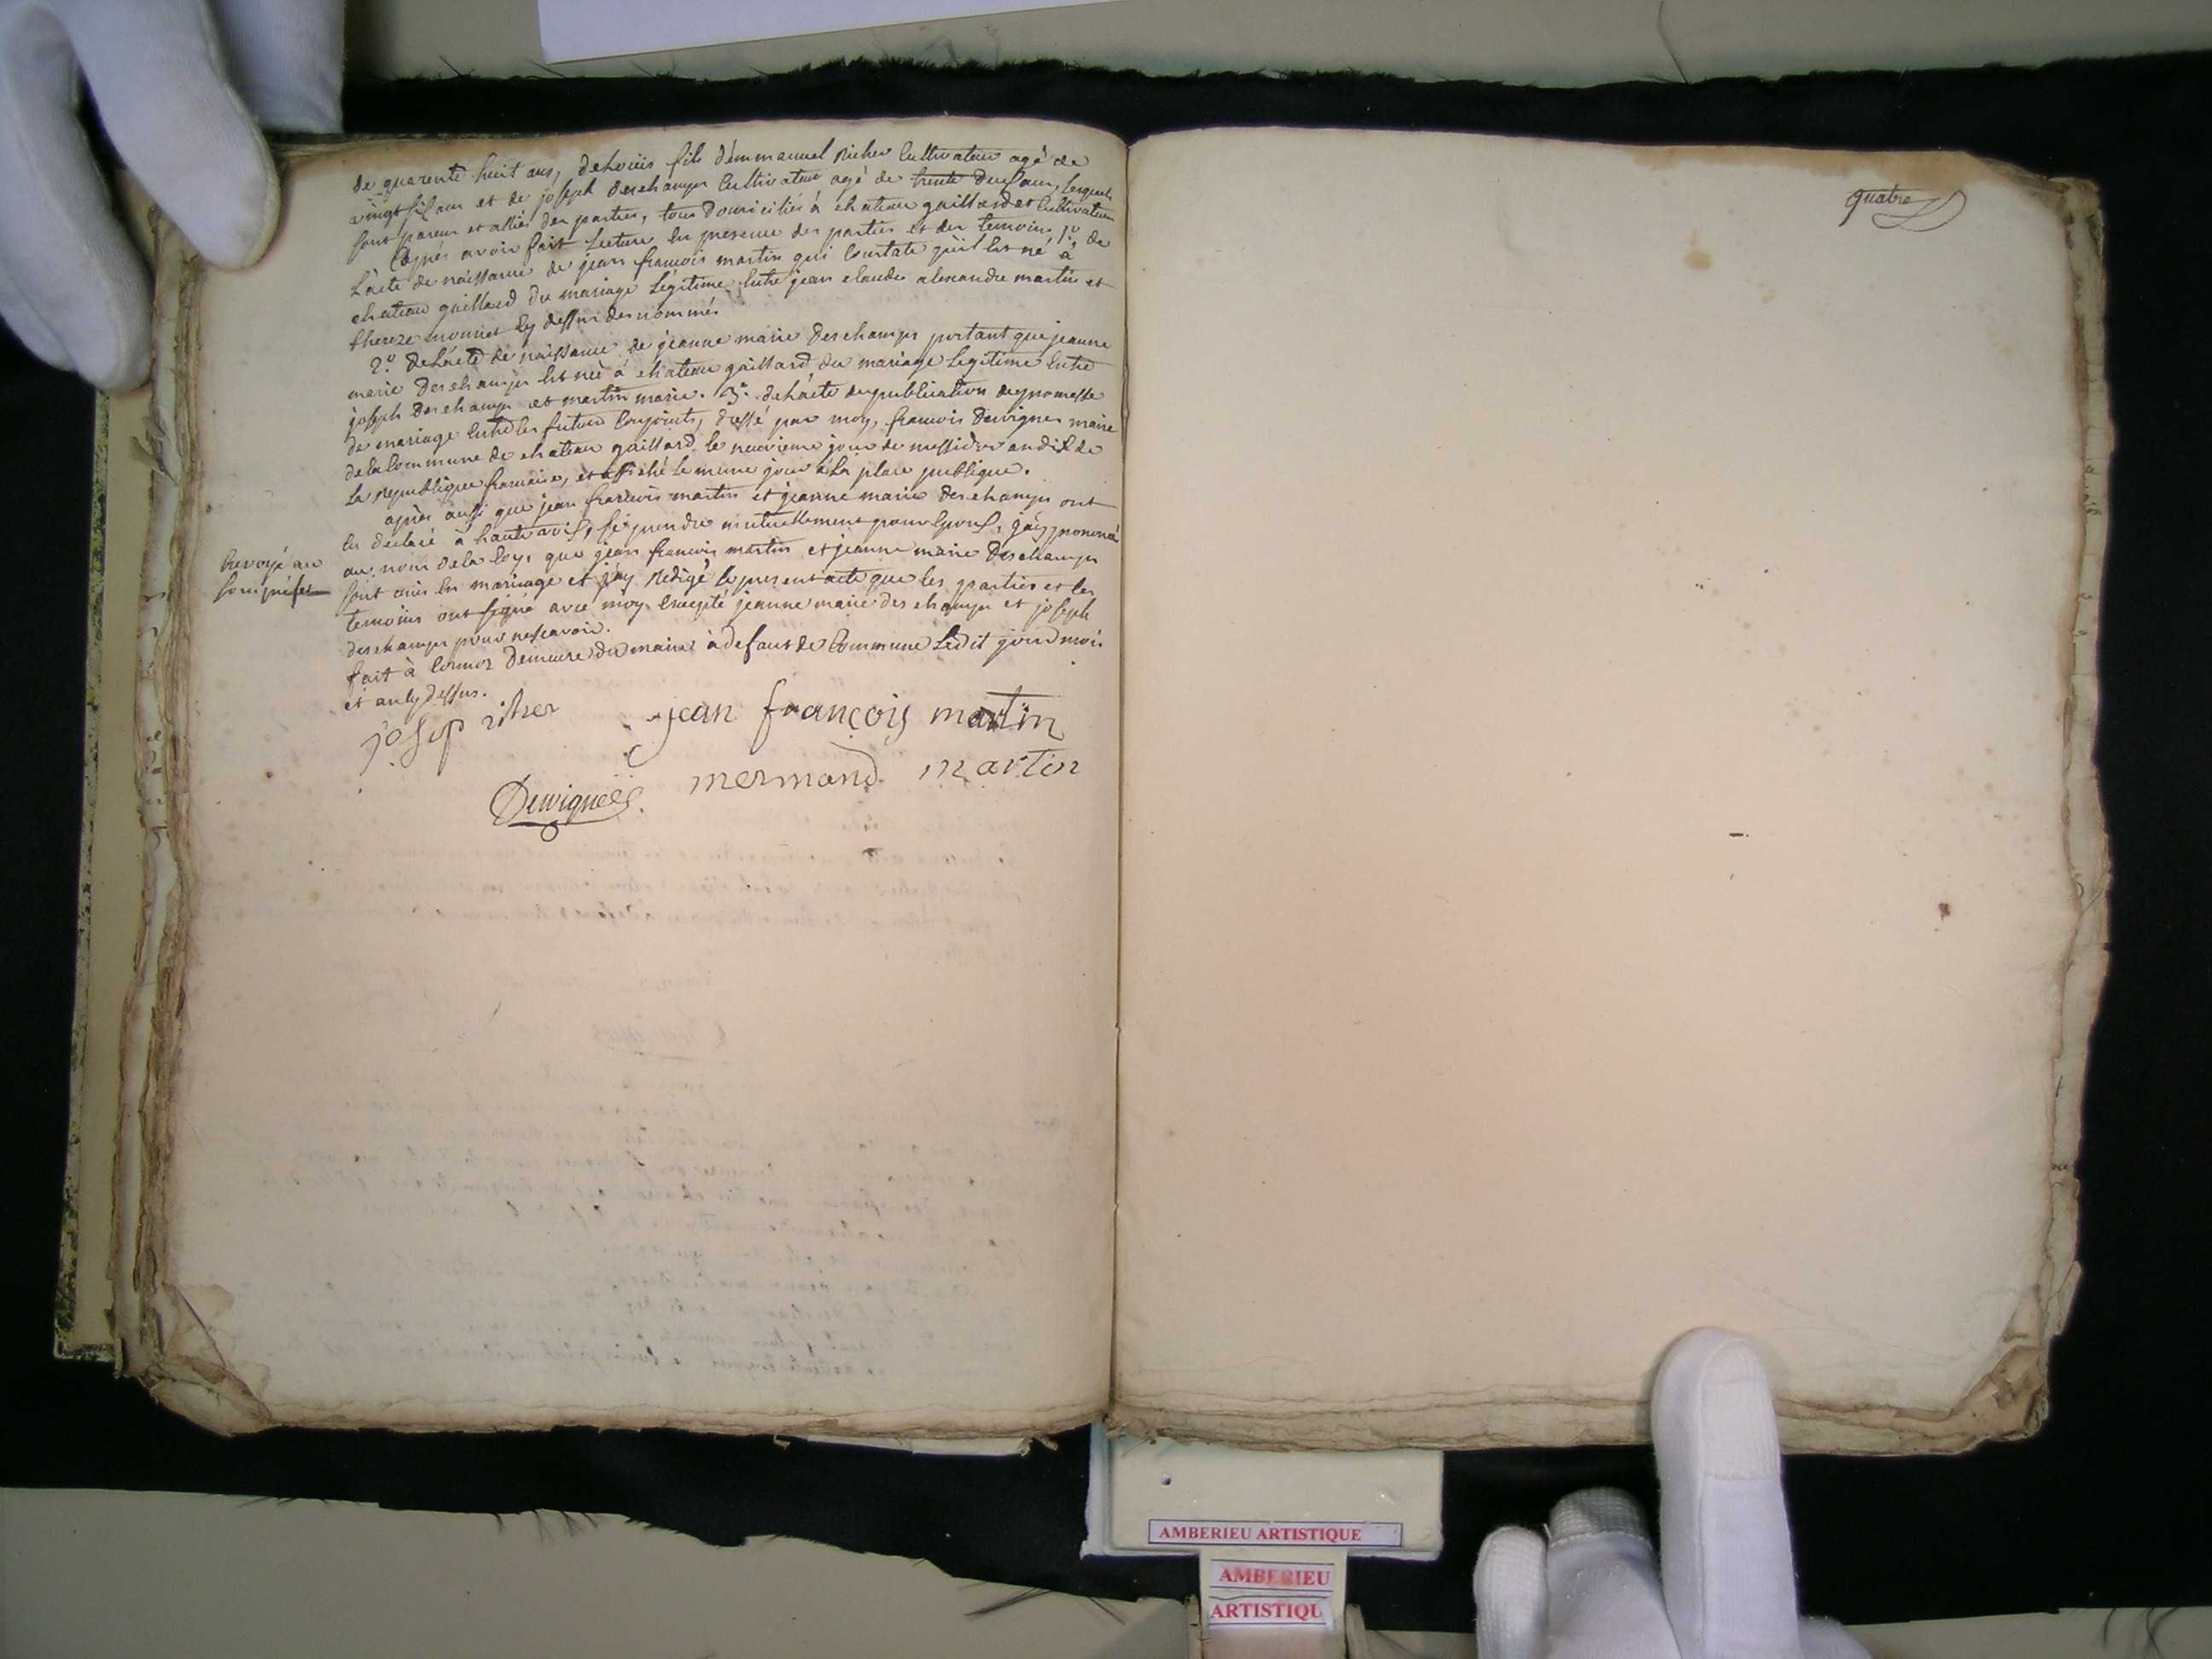 de quarente huit ans, de louis fils d'emmanuel Richer Cultivateur agé de
vingt six ans et de joseph deschamps Cultivateur agé de trente deux ans, lesquels
sont parens et alliés des parties, tous domiciliés à chateau gaillard et Cultivateurs
après avoir fait lecture en presence des parties et des temoins, 1º de
l'acte de naissance de jean francois martin qui Constate qu'il est né à
chateau gaillard du mariage Légitime entre jean claude alexandre martin et
thereze monnet cy dessus denommés
2º de l'acte de naissance de jeanne marie Deschamps portant que jeanne
marie Deschamps est née à chateau gaillard, du mariage legitime entre
joseph Deschamps et martin marie. 3º de l'acte de publication de promesse
de mariage entre les futurs Conjoints, dressé par moy, francois Deuvignes maire
de la Commune de chateau gaillard le neuvieme jour de messidor an dix de
la republique francaise, et affiché le meme jour à la place publique.
après aussi que jean francois martin et jeanne marie Deschamps ont
eu declaré à haute voix, se prendre mutuellement pour Epoux, j'ay prononcé
au nom de la loy, que jean francois martin et jeanne marie Deschamps
sont unis en mariage et j'ay redigé le present acte que les parties et les
temoins ont signé avec moy Excepté jeanne marie deschamps et joseph
deschamps pour ne scavoir.
fait à Cormoz Demeure du maire à defaut de Commune Ledit jour mois
et an cy dessus.
josep riher
jean françois martin
mermand martin
Deuvignes
quatre
AMBERIEU ARTISTIQUE
AMBERIEU
ARTISTIQU